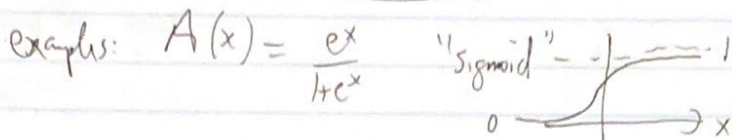 examples: A(x) = e^x / 1+e^x "Sigmoid" 1
0 x